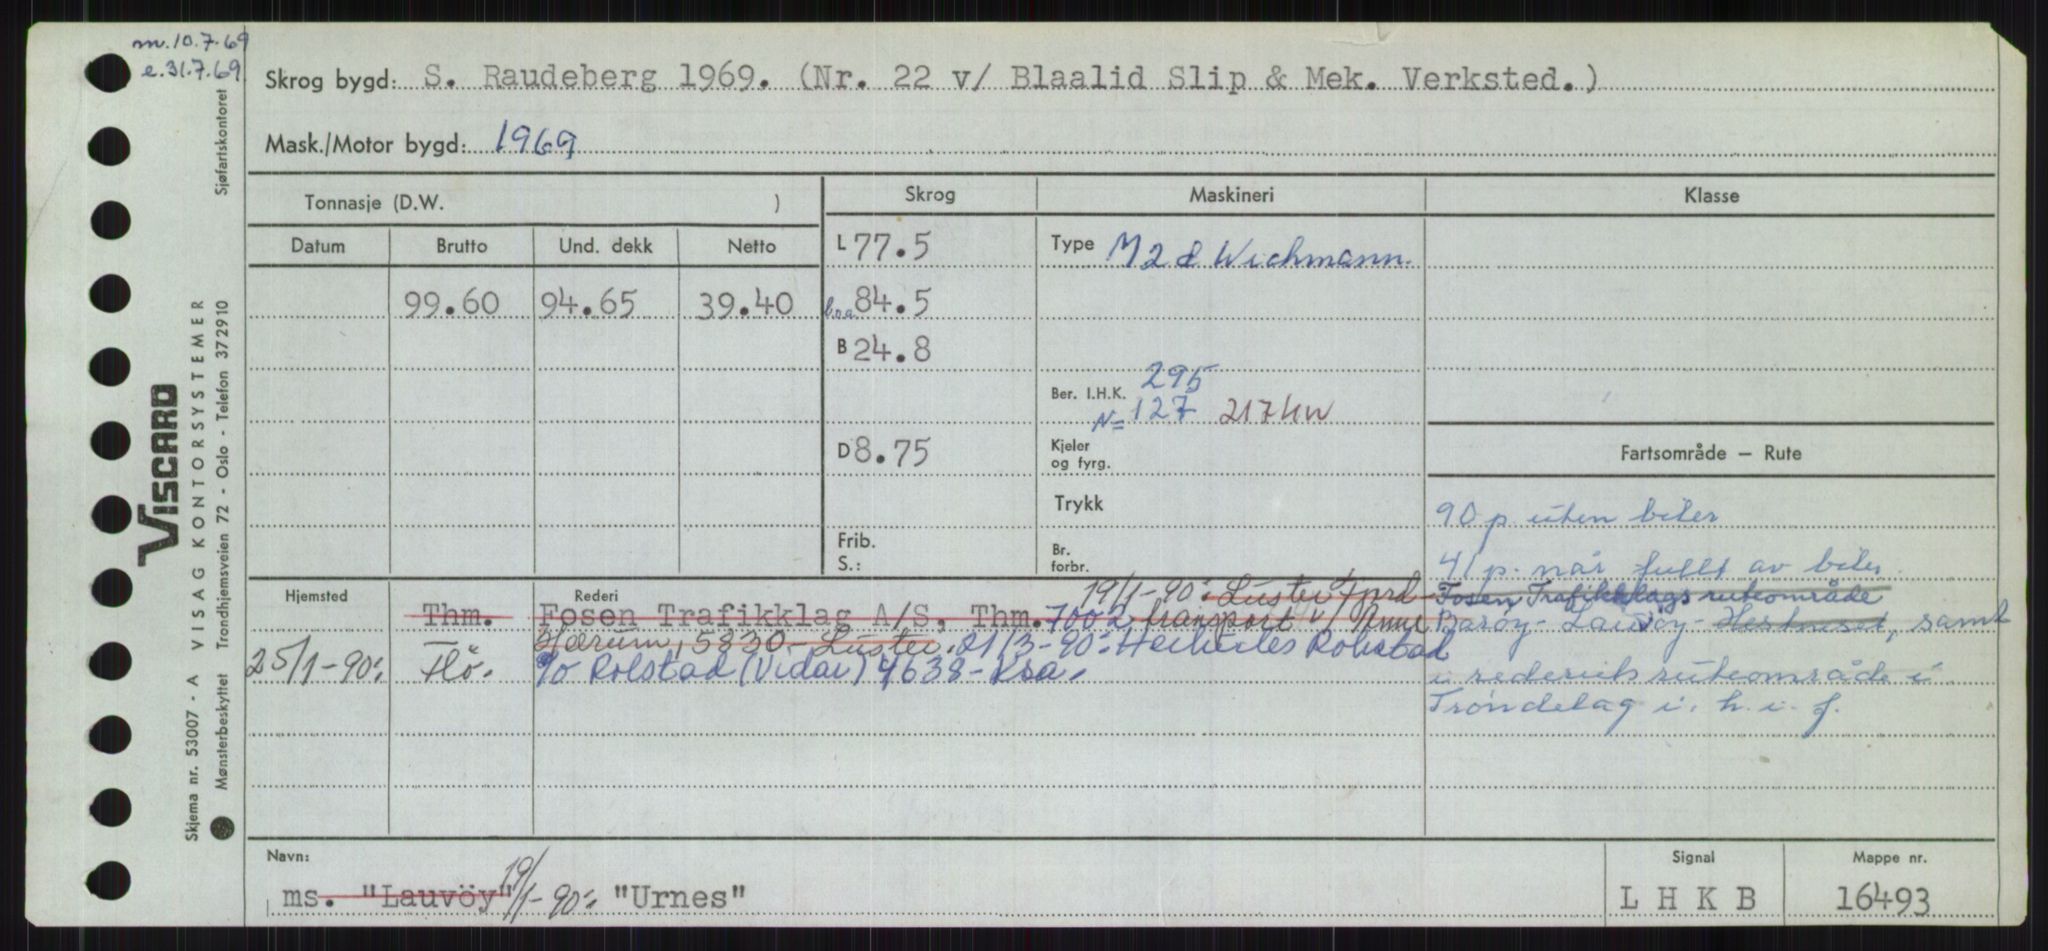 m. 10.7.69
e. 31.7.69
Sjøfartskontoret
Skrog bygd: S. Raudeberg 1969. (Nr. 22 v/ Blaalid Slip & Mek. Verksted.)
Mask./Motor bygd: 1969
Tonnasje (D.W. )
Skrog
Maskineri
Klasse
Datum
Brutto
Und. dekk
Netto
99.60
94.65
39.40
L 77.5
boa 84.5
B 24.8
D 8.75
Frib.
S.:
Type M 2 d Wichmann.
295
Ber. I.H.K.
N= 127 217 kW
Kjeler
og fyrg.
Trykk
Br.
forbr.
Fartsområde – Rute
90 p. uten biler
41 p. når fullt av biler.
Fosen Trafikklags ruteområde
Barøy- Lauvøy- samt
i rederiets ruteområde i
Trøndelag i. h. i. f.
Hjemsted
Rederi
Thm.
Fosen Trafikklag A/S, Thm. 7002
19/1-90: Luster Fjord-
transport v/
5830 - Luster. 21/3-90: Rolstad
25/1-90:
Flö.
c/o Rolstad (Vidar) 4638 - Krsa.
Navn:
ms. "Lauvöy" 19/1-90: "Urnes"
Signal
L H K B
Mappe nr.
16493
VISCARD
Skjema nr. 53007 - A VISAG KONTORSYSTEMER
Mønsterbeskyttet Trondhjemsveien 72 - Oslo - Telefon 372910